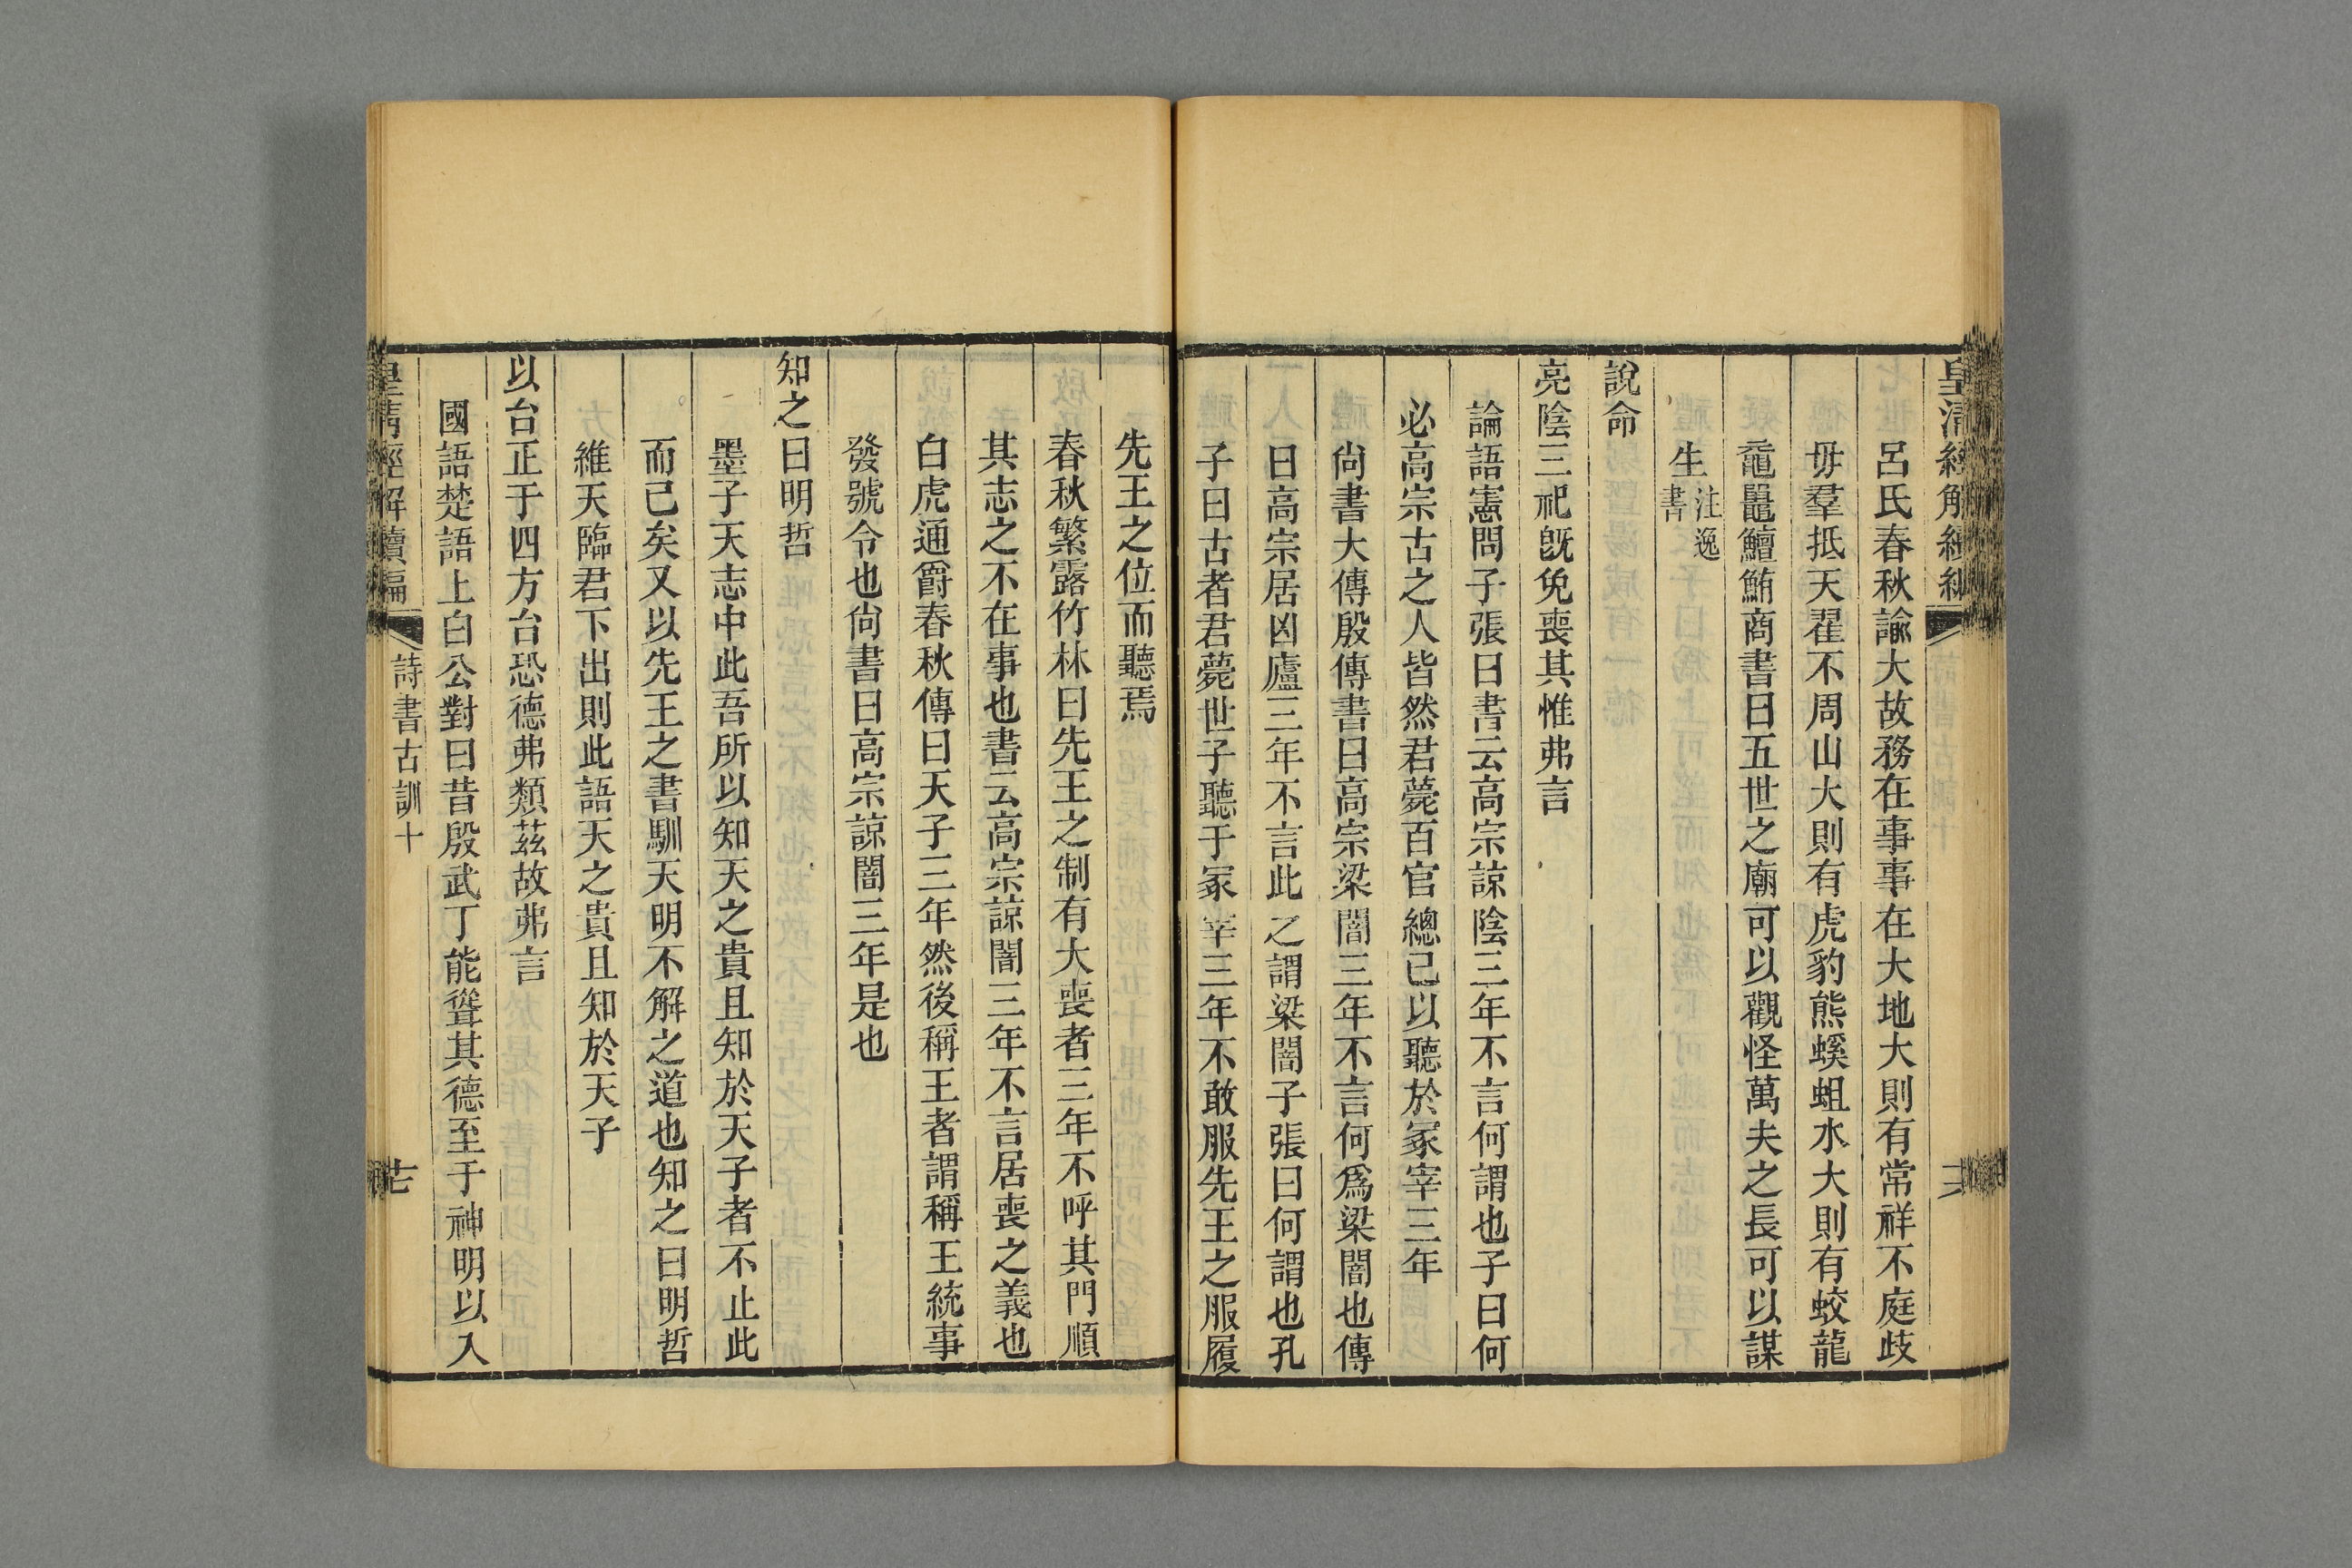 皇清經解續編
呂氏春秋諭大故務在事事在大地大則有常祥不庭歧
毋羣抵天翟不周山大則有虎豹熊螇蛆水大則有蛟龍
黿鼉鱣鮪商書曰五世之廟可以觀怪萬夫之長可以謀
生 注逸書
說命
亮陰三祀旣免喪其惟弗言
論語憲問子張曰書云高宗諒陰三年不言何謂也子曰何
必高宗古之人皆然君薨百官總己以聽於冢宰三年
尙書大傳殷傳書曰高宗梁闇三年不言何爲梁闇也傳
曰高宗居凶廬三年不言此之謂梁闇子張曰何謂也孔
子曰古者君薨世子聽于冢宰三年不敢服先王之服履
先王之位而聽焉
春秋繁露竹林曰先王之制有大喪者三年不呼其門順
其志之不在事也書云高宗諒闇三年不言居喪之義也
白虎通爵春秋傳曰天子三年然後稱王者謂稱王統事
發號令也尙書曰高宗諒闇三年是也
知之曰明哲
墨子天志中此吾所以知天之貴且知於天子者不止此
而已矣又以先王之書馴天明不解之道也知之曰明哲
維天臨君下出則此語天之貴且知於天子
以台正于四方台恐德弗類茲故弗言
國語楚語上白公對曰昔殷武丁能聳其德至于神明以入
皇清經解續編 詩書古訓十